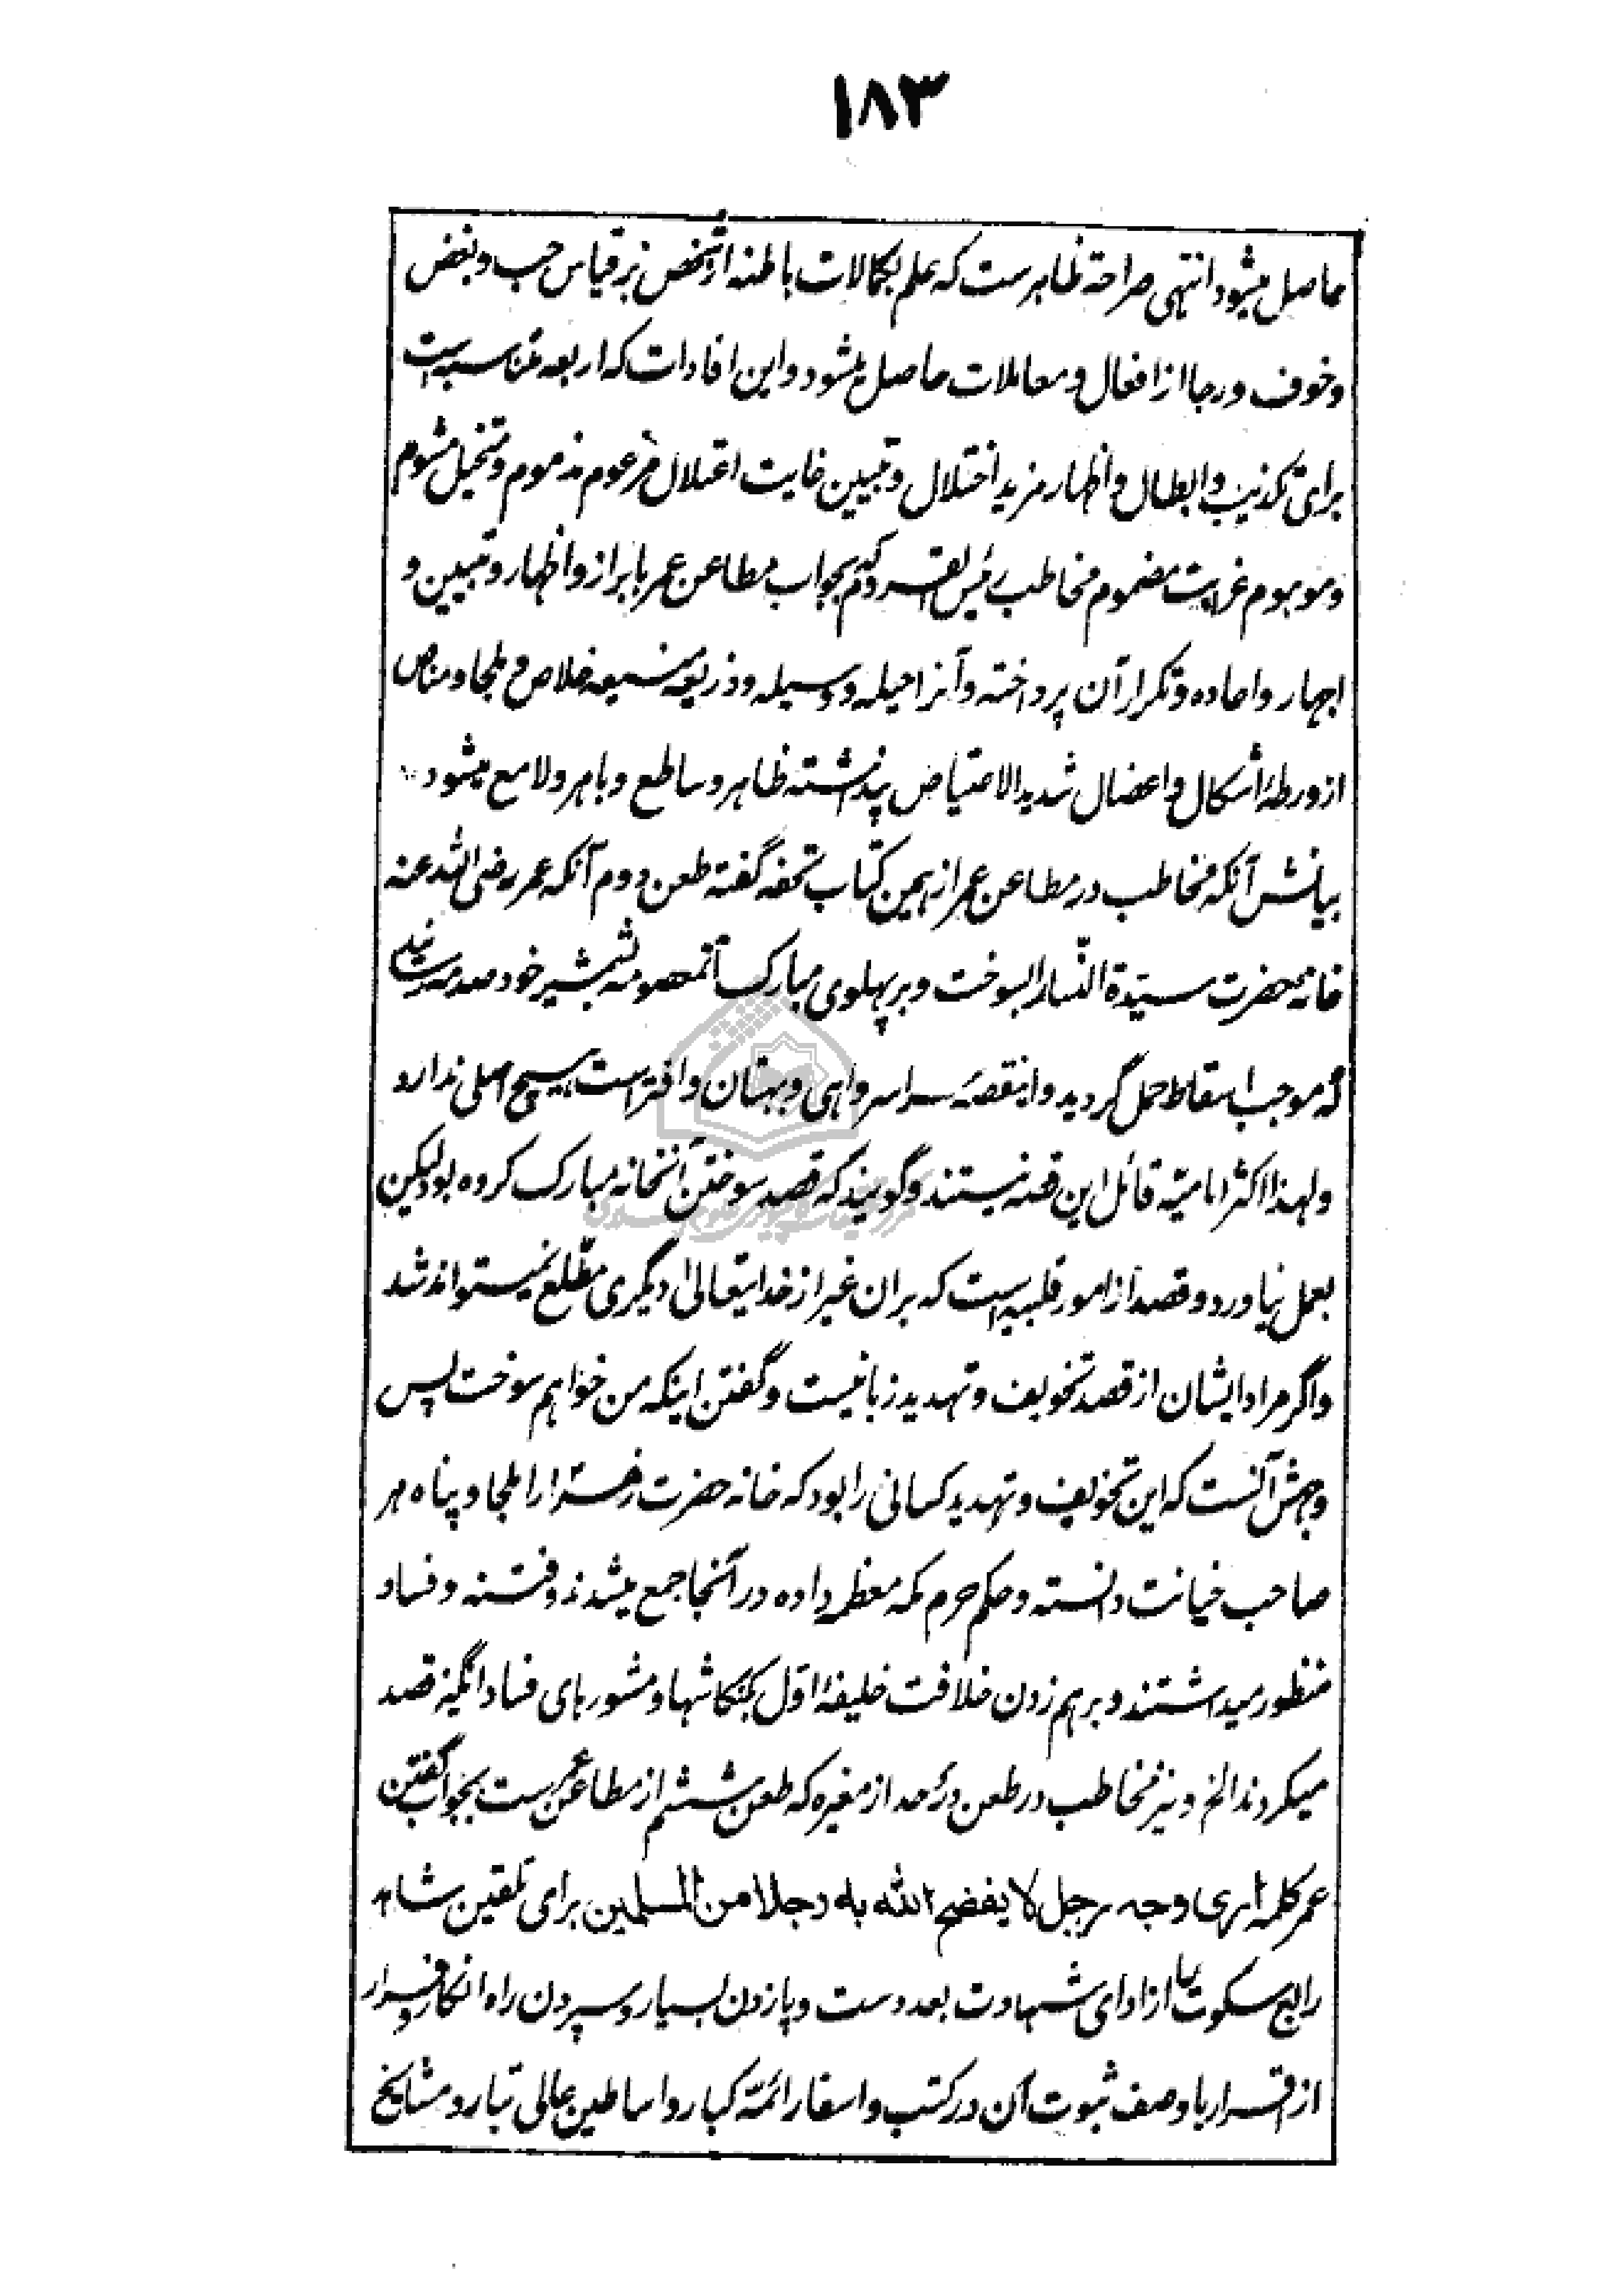 ۱۸۳
حاصل میشود انتهی صراحة ظاهرست که علم بکمالات باطنه از شخص بر قیاس حب و بغض
و خوف و رجا از افعال و معاملات حاصل میشود و این افادات که اربعه متناسبه است
برای تکذیب و ابطال و اظهار مزید اختلال و تبیین غایت اعتلال مزعوم مذموم و متخیل مشوم
و موهوم غرابت مضموم مخاطب رئیس القروم که بجواب مطاعن عمر بابراز و اظهار و تبیین و
اجهار و اعاده و تکرار آن پرداخته و آنرا حیله و وسیله و ذریعه منیعه خلاص و ملجا و مناص
از ورطهٔ اشکال و اعضال شدید الاعتیاص پنداشته ظاهر و ساطع و باهر و لامع میشود
بیانش آنکه مخاطب در مطاعن عمر از همین کتاب تحفه گفته طعن دوم آنکه عمر رضی الله عنه
خانهٔ حضرت سیدة النسا را بسوخت و بر پهلوی مبارک آنمعصومه بشمشیر خود صدمه رسانید
که موجب اسقاط حمل گردید و اینقصه سراسر واهی و بهتان و افتراست هیچ اصلی ندارد
و لهذا اکثر امامیه قائل این قصه نیستند و گویند که قصد سوختن آنخانه مبارک کرده بود لیکن
بعمل نیاورد و قصد از امور قلبیه است که بران غیر از خدایتعالی دیگری مطلع نمیتواند شد
و اگر مراد ایشان از قصد تخویف و تهدید زبانیست و گفتن اینکه من خواهم سوخت پس
وجهش آنست که این تخویف و تهدید کسانی را بود که خانه حضرت زهرا را ملجا و پناه هر
صاحب خیانت دانسته و حکم حرم مکه معظمه داده در آنجا جمع میشدند و فتنه و فساد
منظور میداشتند و برهم زدن خلافت خلیفهٔ اول بکنکاشها و مشورهای فساد انگیز قصد
میکردند الخ و نیز مخاطب در طعن درء حد از مغیره که طعن ششم از مطاعن عمرست بجواب گفتن
عمر کلمه اری وجه رجل لا یفضح الله به رجلا من المسلمین برای تلقین شاهد
رابع سکوت را از ادای شهادت بعد دست و پا زدن بسیار و سپردن راه انکار و فرار
از اقرار با وصف ثبوت آن در کتب و اسفار ائمه کبار و اساطین عالی تبار و مشایخ